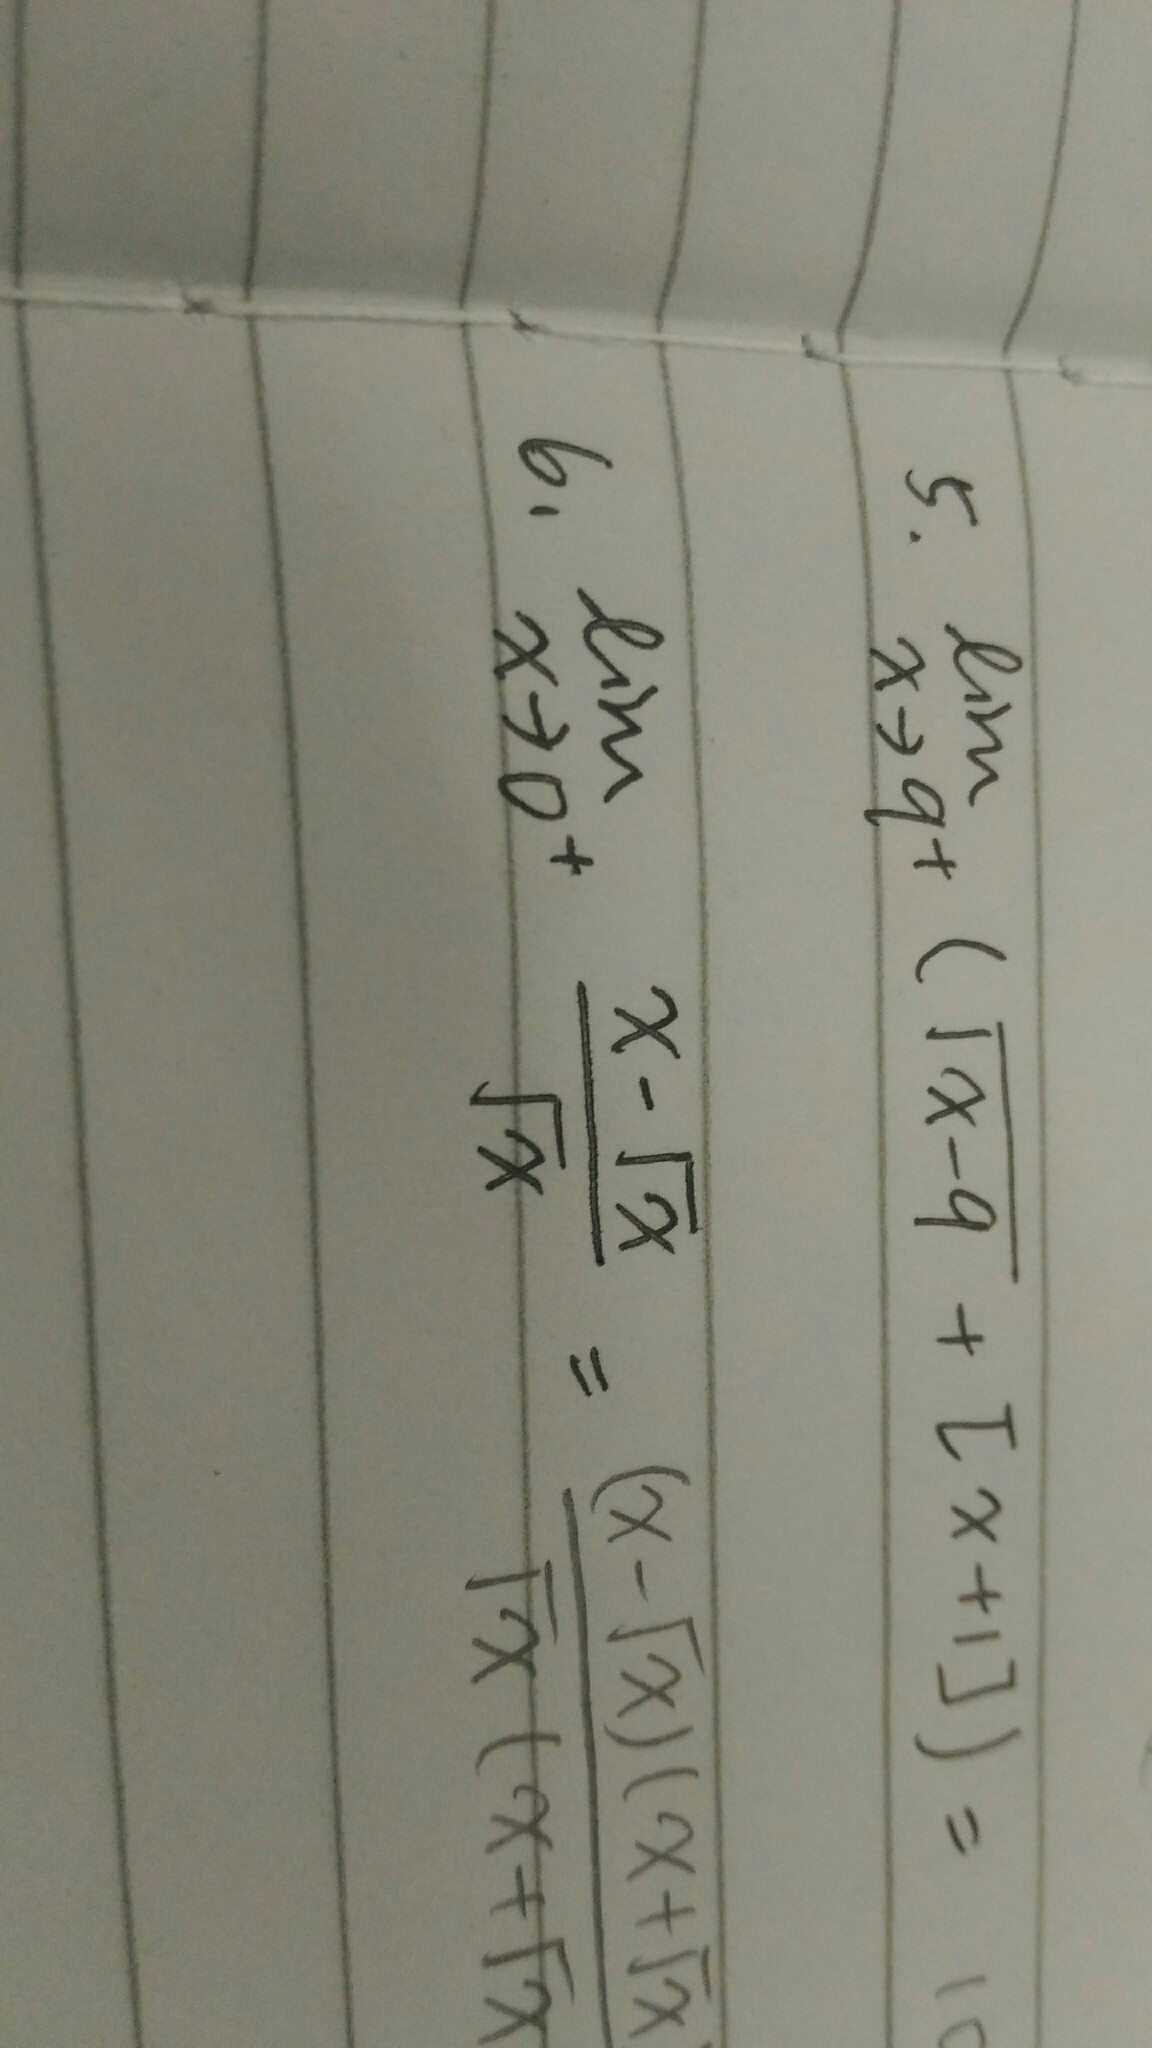 5. lim x→9+ (√(x-9) + [x+1]) = 10
6. lim x→0+ (x-√x)/√x = (x-√x)(x+√x)/√x(x+√x